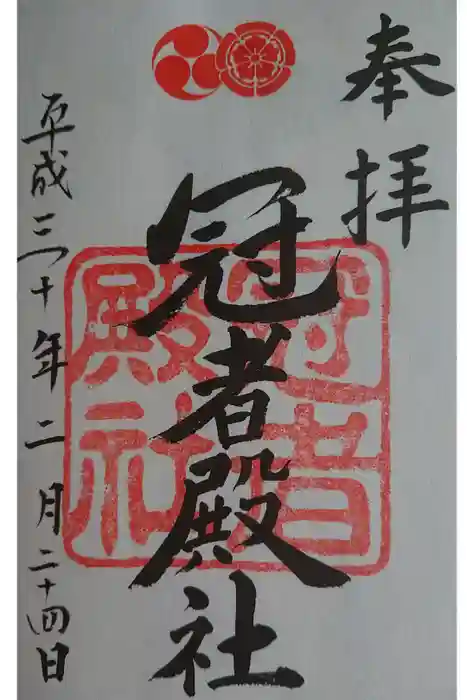 奉拝
冠者殿社
冠者殿社
平成三十年二月二十四日